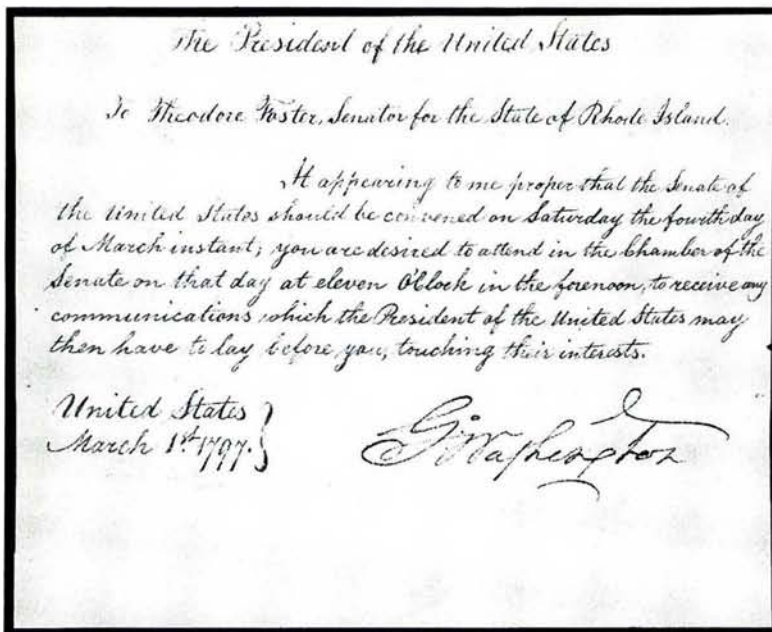 The President of the United States
To Theodore Foster, Senator for the State of Rhode Island.
It appearing to me proper that the Senate of
the United States should be convened on Saturday the fourth day
of March instant; you are desired to attend in the Chamber of the
Senate on that day at eleven O'Clock in the forenoon, to receive any
communications which the President of the United States may
then have to lay before you, touching their interests.
United States
March 1st. 1797.
G:Washington